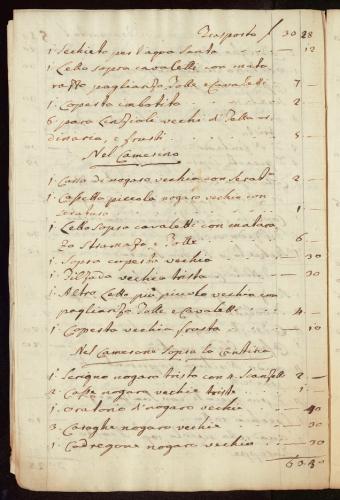 Trasporto 30 28
1 Sechieto per l'aqua Santa — 12
1 Letto sopra cavaletti con mata
razzo pagliarizo Tolle e Cavaletti 7 —
1 Copesto imbotito 2 —
6 para Lenzioli vechi di Tella or
dinaria, e frusti 5 —
Nel Camerino
1 Cassa di nogaro vechia con 2 —
1 Cassetta piccola nogaro vechia con
seratura 1 —
1 Letto sopra cavaletti con matara
zo e Tolle 6 —
1 Sopra vechia — 30
1 vechia trista — 30
1 Altro Letto più piccolo vechio con
pagliarizo Tolle e Cavaletti 4 —
1 Copesta vechia frusta — 10
Nel Camerone sopra la Cantina
1 Scrigno nogaro tristo con 4 2 —
2 Casse nogara vechie triste 1 —
1 Oratorio di nogaro vechio — 40
3 Careghe nogaro vechie — 30
1 Cadregone nogaro vechio — 30